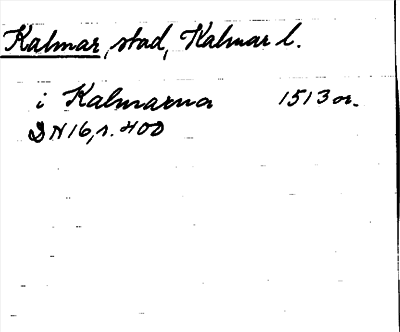 Kalmar, stad, Kalmar l.
i Kalmarna 1513 or.
DN 16, s. 400